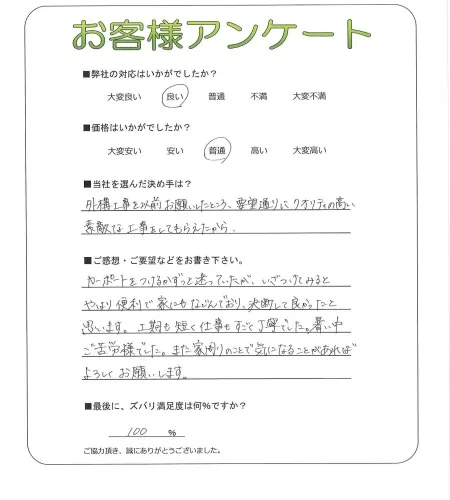 お客様アンケート
■弊社の対応はいかがでしたか?
大変良い 良い 普通 不満 大変不満
■価格はいかがでしたか?
大変安い 安い 普通 高い 大変高い
■当社を選んだ決め手は?
外構工事を以前お願いしたところ、要望通りにクオリティの高い
素敵な工事をしてもらえたから.
■ご感想・ご要望などをお書き下さい。
カーポートをつけるかずっと迷っていたが、いざつけてみると
やはり便利で家にもなじんでおり、決断して良かったと
思います。工期も短く仕事もすごく丁寧でした。暑い中
ご苦労様でした。また家周りのことで気になることがあれば
よろしくお願いします。
■最後に、ズバリ満足度は何%ですか?
100 %
ご協力頂き、誠にありがとうございました。